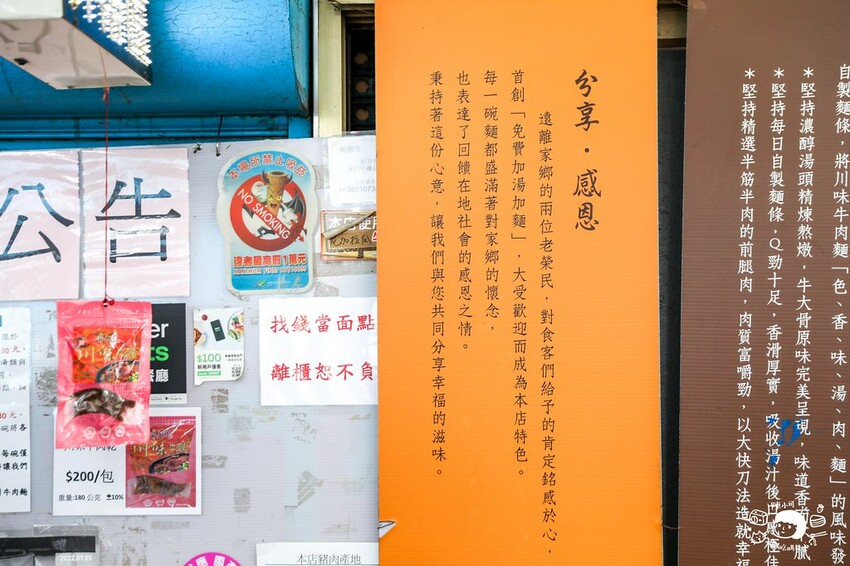 公告
本場所禁止吸菸
NO SMOKING
違者最高罰1萬元
找錢當面點
離櫃恕不負
$100
新用戶優惠
$200/包
重量:180公克 ±10%
2022.07.00
本店豬肉產地
分享・感恩
遠離家鄉的兩位老榮民，對食客們給予的肯定銘感於心，
首創「免費加湯加麵」，大受歡迎而成為本店特色。
每一碗麵都盛滿著對家鄉的懷念，
也表達了回饋在地社會的感恩之情。
秉持著這份心意，讓我們與您共同分享幸福的滋味。
自製麵條，將川味牛肉麵「色、香、味、湯、肉、麵」的風味發
＊堅持濃醇湯頭精煉熬燉，牛大骨原味完美呈現，味道香
＊堅持每日自製麵條，Q勁十足，香滑厚實，吸收湯汁後
＊堅持精選半筋半肉的前腿肉，肉質富嚼勁，以大快刀法造就幸福